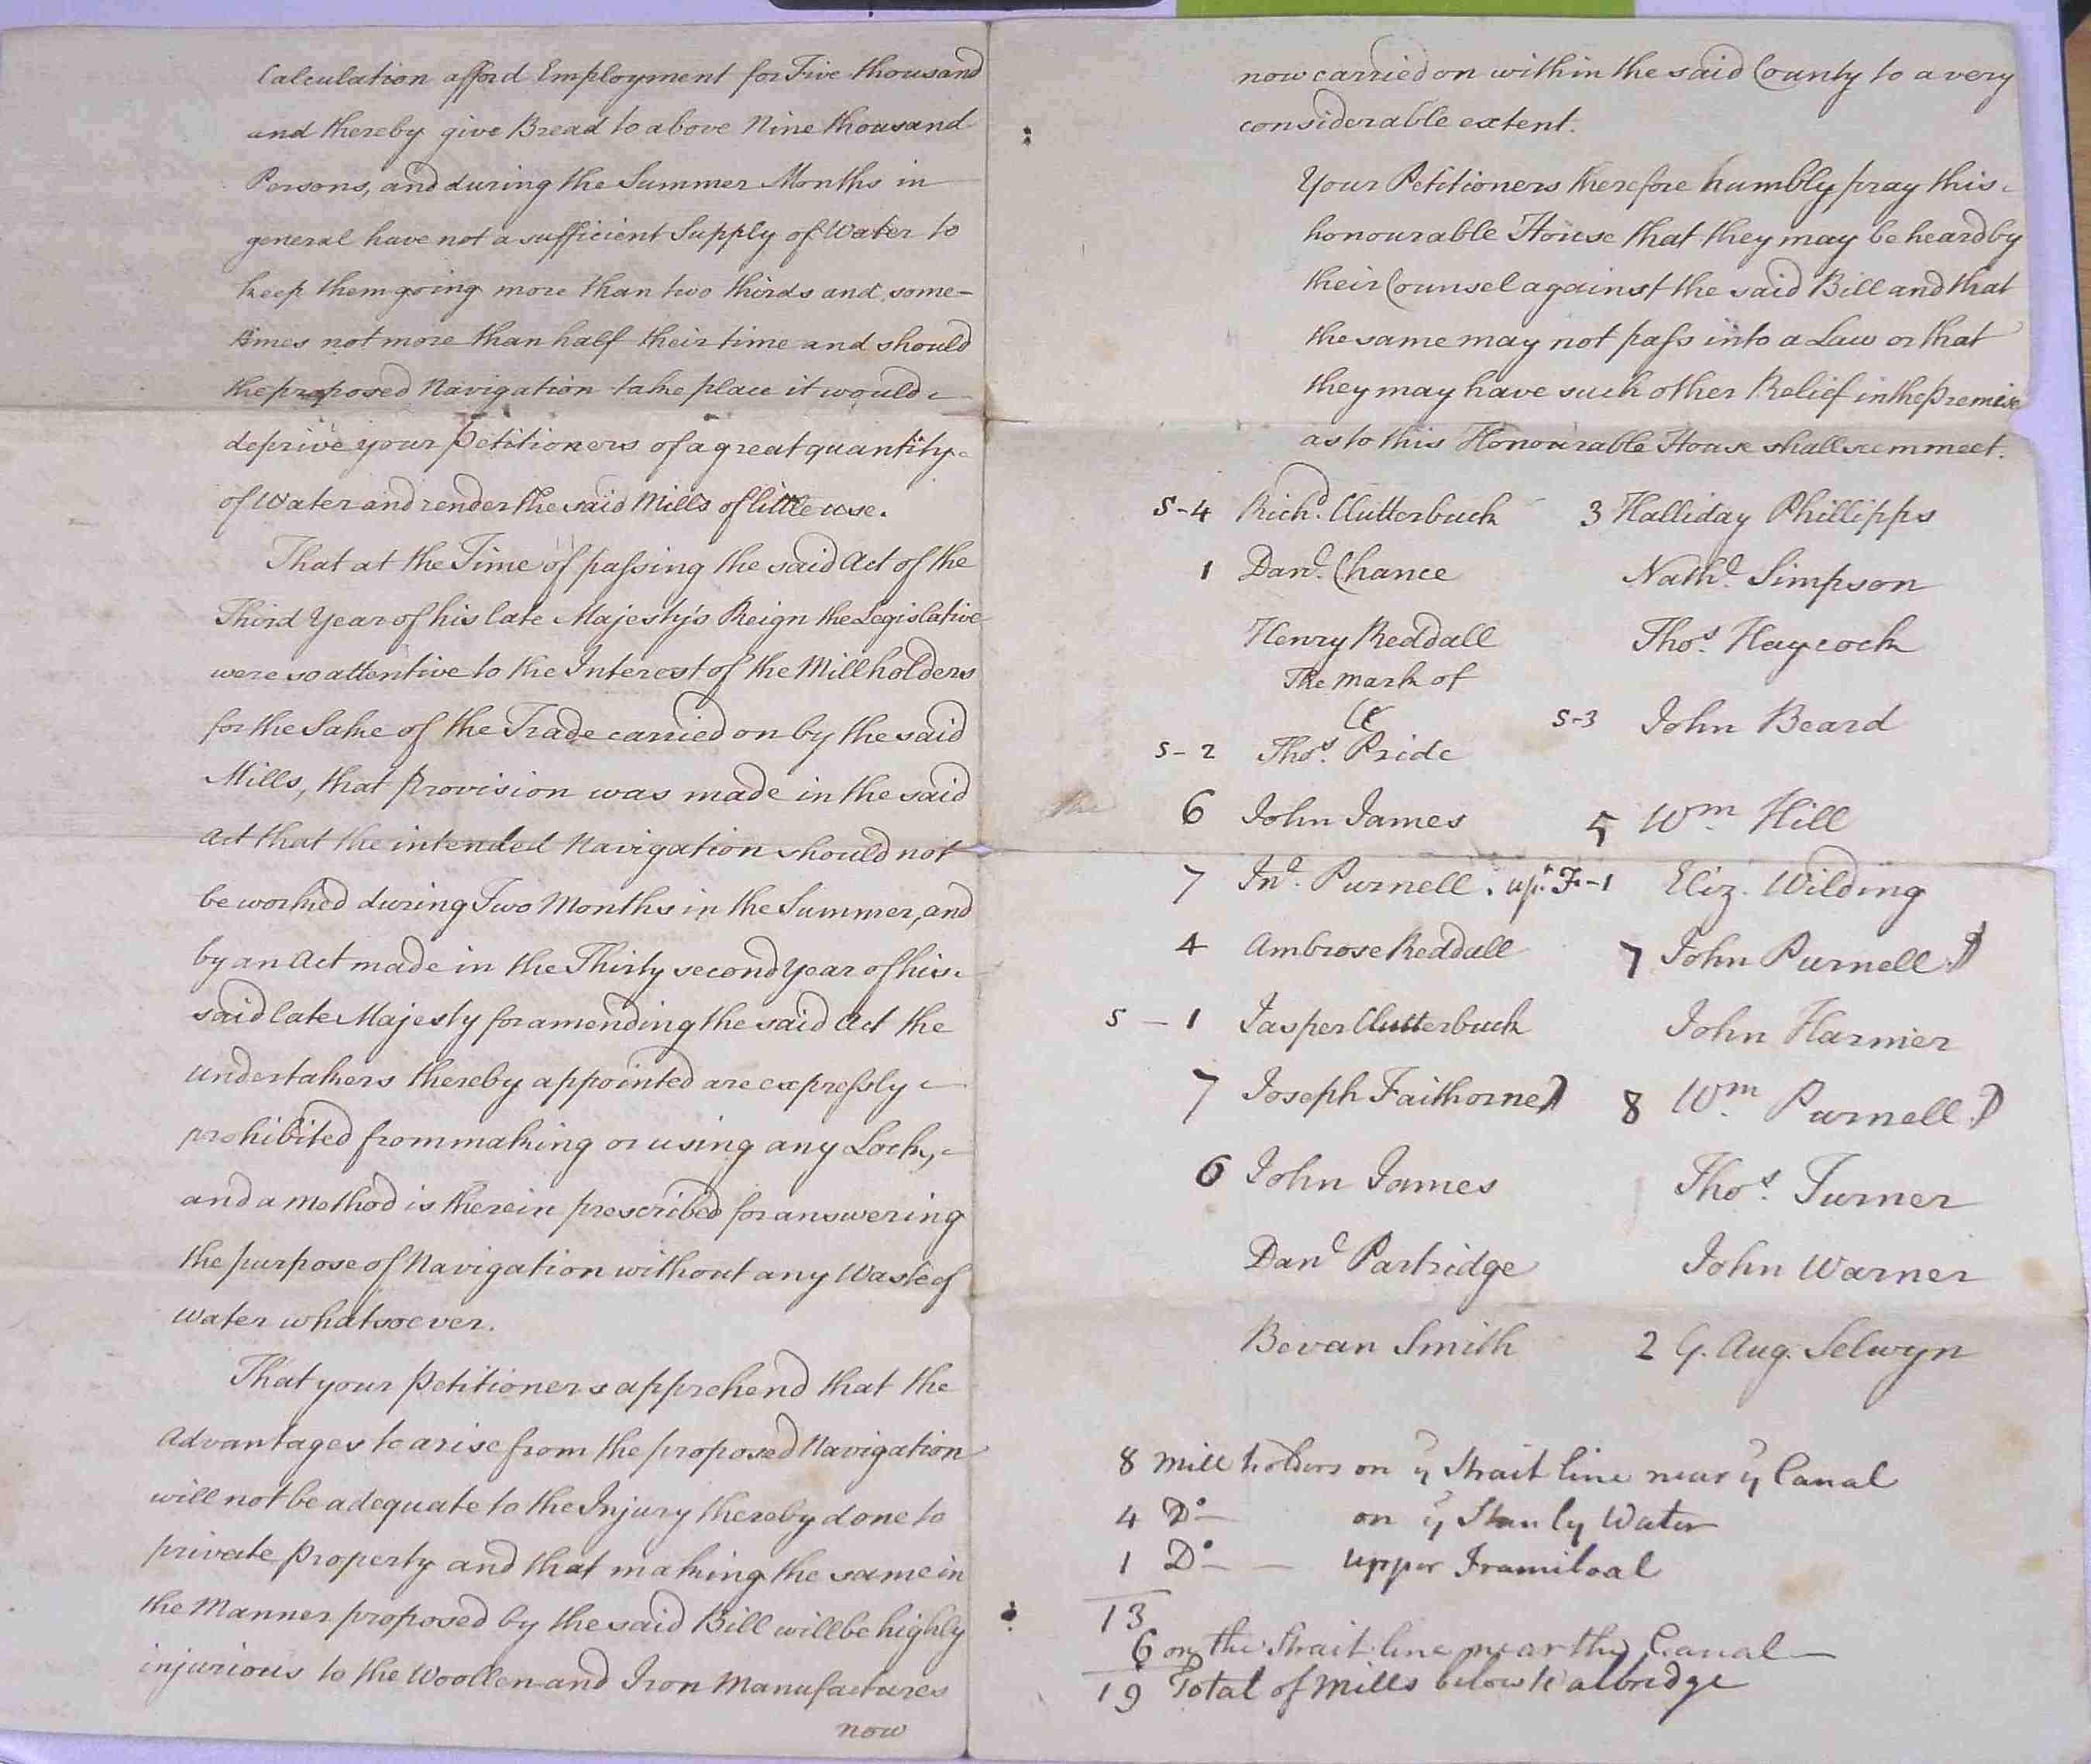 Calculation afford Employment for Five thousand
and thereby give Bread to above Nine thousand
Persons, and during the Summer Months in
general have not a sufficient Supply of Water to
keep them going more than two thirds and some-
times not more than half their time and should
the proposed Navigation take place it would
deprive your Petitioners of a great quantity
of Water and render the said Mills of little use.
That at the Time of passing the said Act of the
Third Year of his late Majesty's Reign the Legislative
were so attentive to the Interest of the Millholders
for the Sake of the Trade carried on by the said
Mills, that Provision was made in the said
Act that the intended Navigation should not
be worked during Two Months in the Summer, and
by an Act made in the Thirty second Year of his
said late Majesty for amending the said Act the
Undertakers thereby appointed are expressly
prohibited from making or using any Lock,
and a Method is therein prescribed for answering
the purpose of Navigation without any Waste of
Water whatsoever.
That your Petitioners apprehend that the
Advantages to arise from the proposed Navigation
will not be adequate to the Injury thereby done to
private Property and that making the same in
the Manner proposed by the said Bill will be highly
injurious to the Woollen and Iron Manufactures
now
now carried on within the said County to a very
considerable extent.
Your Petitioners therefore humbly pray this
honourable House that they may be heard by
their Counsel against the said Bill and that
the same may not pass into a Law or that
they may have such other Relief in the Premises
as to this Honourable House shall seem meet.
S-4 Richd. Clutterbuck 3 Halliday Phillipps
1 Danl. Chance Nathl. Simpson
Henry Reddall Thos. Haycock
The mark of
S-3 John Beard
S-2 Thos. Pride
the
6 John James 5 Wm. Hill
7 Jno. Purnell. up. F-1 Eliz. Wilding
4 Ambrose Reddall 7 John Purnell
S-1 Jasper Clutterbuck John Harmer
7 Joseph Faithorne 8 Wm. Purnell
6 John James Thos. Turner
Danl Partridge John Warner
Bevan Smith 2 G. Aug. Selwyn
8 Mill holders on ye Strait line near ye Canal
4 Do on ye Stanly Water
1 Do upper Framiloal
13
6 on the Strait line near the Canal
19 Total of Mills below Walbridge